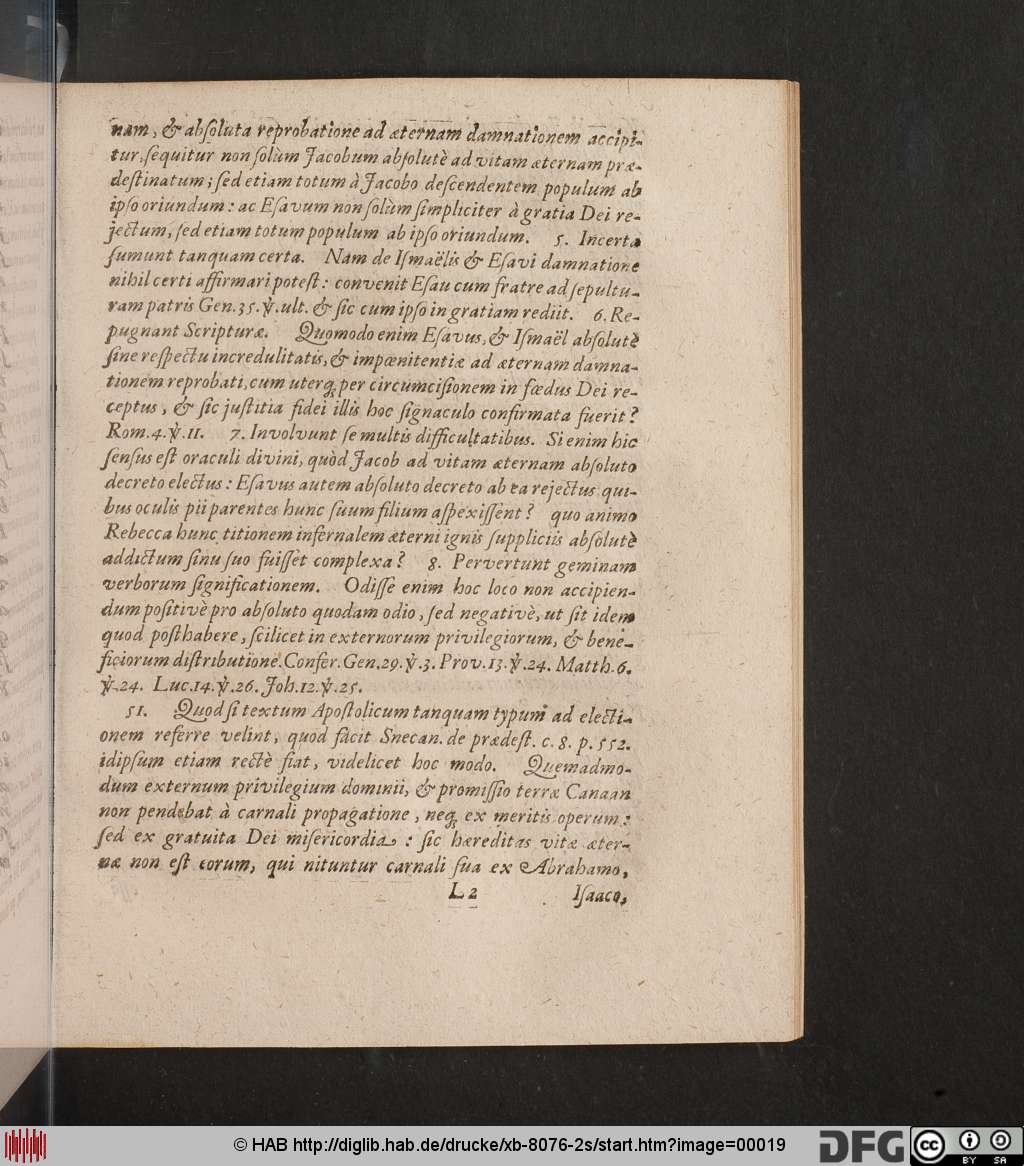 nam, & abſoluta reprobatione ad æternam damnationem accipi-
tur, ſequitur non ſolùm Jacobum abſolutè ad vitam æternam præ-
deſtinatum; ſed etiam totum à Jacobo deſcendentem populum ab
ipſo oriundum: ac Eſavum non ſolùm ſimpliciter à gratia Dei re-
jectum, ſed etiam totum populum ab ipſo oriundum. 5. Incerta
ſumunt tanquam certa. Nam de Iſmaëlis & Eſavi damnatione
nihil certi affirmari poteſt: convenit Eſau cum fratre ad ſepultu-
ram patris Gen. 35. ℣. ult. & ſic cum ipſo in gratiam rediit. 6. Re-
pugnant Scripturæ. Quomodo enim Eſavus, & Iſmaël abſolutè
ſine reſpectu incredulitatis, & impœnitentiæ ad æternam damna-
tionem reprobati, cum uterq́; per circumciſionem in fœdus Dei re-
ceptus, & ſic juſtitia fidei illis hoc ſignaculo confirmata fuerit?
Rom. 4. ℣. 11. 7. Involvunt ſe multis difficultatibus. Si enim hic
ſenſus eſt oraculi divini, quòd Jacob ad vitam æternam abſoluto
decreto electus: Eſavus autem abſoluto decreto ab ea rejectus: qui-
bus oculis pii parentes hunc ſuum filium aſpexiſſent? quo animo
Rebecca hunc titionem infernalem æterni ignis ſuppliciis abſolutè
addictum ſinu ſuo fuiſſet complexa? 8. Pervertunt geminam
verborum ſignificationem. Odiſſe enim hoc loco non accipien-
dum poſitivè pro abſoluto quodam odio, ſed negativè, ut ſit idem
quod poſthabere, ſcilicet in externorum privilegiorum, & bene-
ficiorum diſtributione. Confer. Gen. 29. ℣. 3. Prov. 13. ℣. 24. Matth. 6.
℣. 24. Luc. 14. ℣. 26. Joh. 12. ℣. 25.
51. Quod ſi textum Apoſtolicum tanquam typum ad electi-
onem referre velint, quod facit Snecan. de prædeſt. c. 8. p. 552.
idipſum etiam rectè fiat, videlicet hoc modo. Quemadmo-
dum externum privilegium dominii, & promiſſio terræ Canaan
non pendebat à carnali propagatione, neq́; ex meritis operum:
ſed ex gratuita Dei miſericordia: ſic hæreditas vitæ æter-
næ non eſt eorum, qui nituntur carnali ſua ex Abrahamo,
L 2 Iſaaco,
© HAB http://diglib.hab.de/drucke/xb-8076-2s/start.htm?image=00019
DFG
cc BY SA